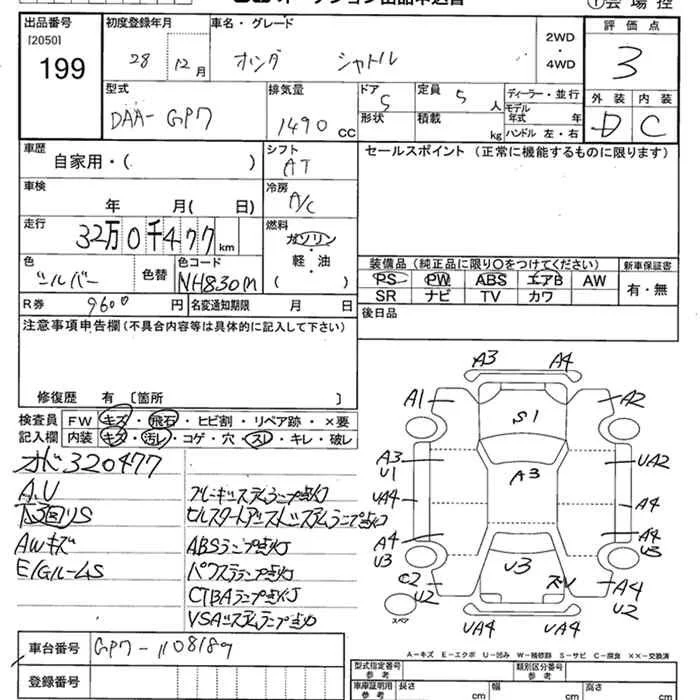 ①会場控
出品番号 初度登録年月 車名・グレード 評価点
[2050]
199
28 12月 ホンダ シャトル
2WD
・
4WD
3
型式 排気量 ドア 定員 ディーラー・並行 外装 内装
DAA-GP7 1490 CC 5 5 人
形状 積載 kg
モデル年式 年
ハンドル 左・右
D C
車歴 自家用・( )
シフト AT
セールスポイント (正常に機能するものに限ります)
車検 年 月( 日)
冷房 A/C
走行 32万0千477 km
燃料 ガソリン
軽・油
( )
色 シルバー 色替 色コード NH830M
装備品 (純正品に限り○をつけてください) 新車保証書
PS PW ABS エアB AW 有・無
SR ナビ TV カワ
R券 9600 円 名変通知期限 月 日
後日品
注意事項申告欄(不具合内容等は具体的に記入して下さい)
修復歴 有 [箇所 ]
検査員 FW キズ・飛石・ヒビ割・リペア跡・×要
記入欄 内装 キズ・汚レ・コゲ・穴・スレ・キレ・破レ
オド320477
A.U
下回りS
AWキズ
E/GルームS
ブレーキシステムランプ点灯
ヒルスタートアシストシステムランプ点灯
ABSランプ点灯
パワステランプ点灯
CTBAランプ点灯
VSAシステムランプ点灯
A3 A4
A1 S1 A2
A3 U1 A3 UA2
UA4 A4
A4 U3 A4 U3
C2 U2 U3 A4 U2
スペア
UA4 UA4
A-キズ E-エクボ U-凹み W-補修跡 S-サビ C-腐食 ××-交換済
車台番号 GP7-1108189
登録番号
型式指定番号 参考 類別区分番号 参考
車庫証明用 参考 長さ cm 幅 cm 高さ cm